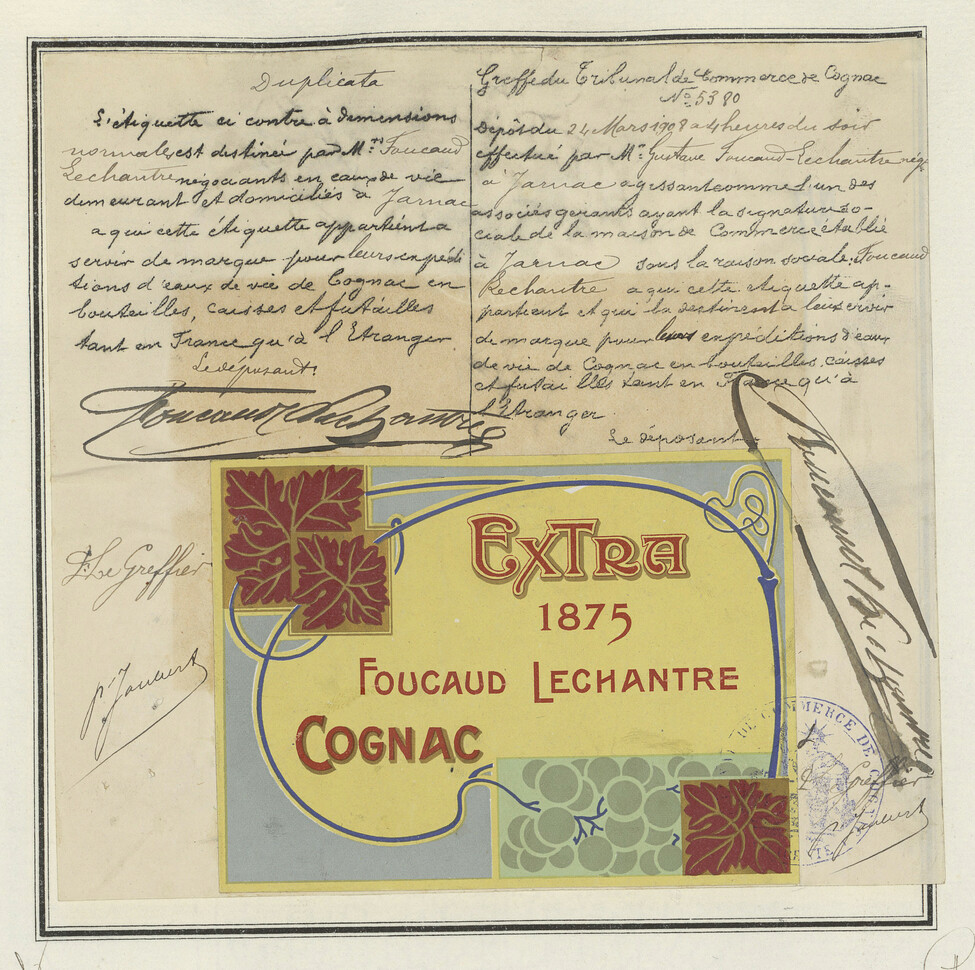 Duplicata
L'étiquette ci contre à dimensions
normales est destinée par M.rs Foucaud
Lechantre négociants en eaux de vie
demeurant et domiciliés à Jarnac
a qui cette étiquette appartient a
servir de marque pour leurs expédi
tions d'eaux de vie de Cognac en
bouteilles, caisses et futailles
tant en France qu'à l'Etranger
Le déposant.
Foucaud Lechantre
Greffe du Tribunal de Commerce de Cognac
No 5380
Dépôt du 24 Mars 1908 a 4 heures du soir
effectué par Mr Gustave Foucaud-Lechantre négt
à Jarnac agissant comme l'un des
associés gerants ayant la signature so-
ciale de la maison de Commerce établie
à Jarnac sous la raison sociale: Foucaud
Lechantre a qui cette étiquette ap-
partient et qui la destinent a leur servir
de marque pour leurs expéditions d'eaux
de vie de Cognac en bouteilles, caisses
et futailles tant en France qu'à
l'Etranger
Le déposant
Foucaud Lechantre
P. Le Greffier
pr Jaubert
EXTRA
1875
FOUCAUD LECHANTRE
COGNAC
DE COMMERCE DE COGNAC
Greffier
Jaubert